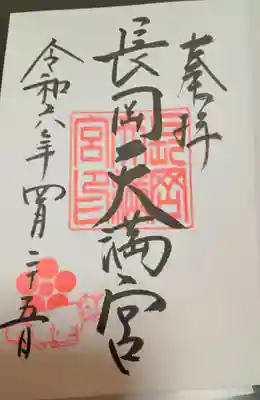 奉拝
長岡天満宮
令和六年四月二十五日
長岡
宮印